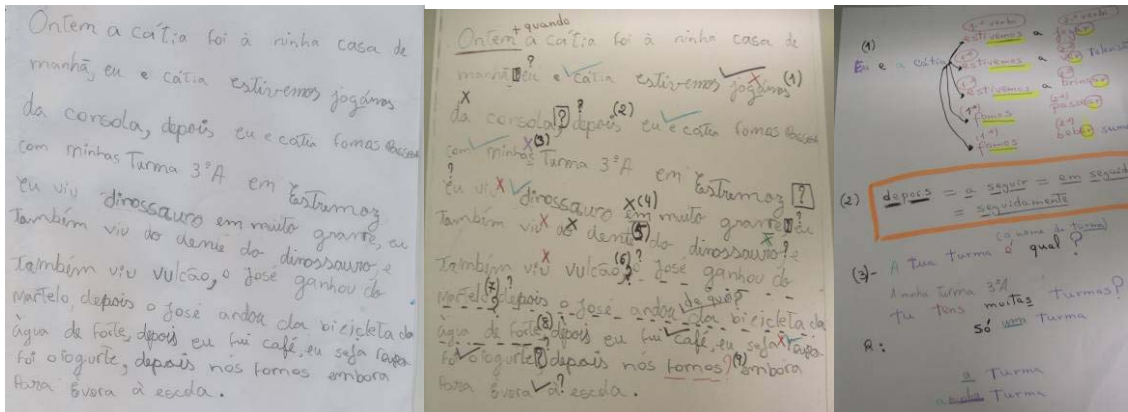 Ontem a cátia foi à ninha casa de
manhã, eu e cátia estivemos jogámos
da consola, depois eu e cátia fomos
com minhas Turma 3ºA em Estremoz
eu viv dinossauro em muito grante, eu
também viv do dente do dinossauro, e
também viv vulcão, o José ganhou do
martelo, depois o José andou da bicicleta da
água de forte, depois eu fui café, eu seja
foi o iogurte, depois nós fornos embora
Para Évora à escola.
+ quando
Ontem a cátia foi à ninha casa de
?
manhã eu e cátia estivemos jogámos (1)
x
da consola ? depois (2) eu e cátia fomos
x(3)
com minhas Turma 3ºA em Estremoz ?
?
eu viv x dinossauro x(4) em muito grante eu
também viv do dente (5) do dinossauro ?
também viv vulcão, (6) ? o José ganhou do
martelo (7) ? depois o José andou da bicicleta da
de quê?
água de forte, (8) depois eu fui café, eu seja
foi o iogurte ? depois nós fornos ? (9) embora
Para Évora à ? escola.
1º verbo 2º verbo
(1) estivemos a jogar
Eu e a cátia estivemos a
estivemos a brincar
fomos passear
fomos beber sumo
(2) depois = a seguir = em seguida
= seguidamente
(o nome da turma)
(3)- A tua turma é qual?
A minha turma 3ºA
tu tens muitas turmas?
só uma turma
R:
a turma
turma